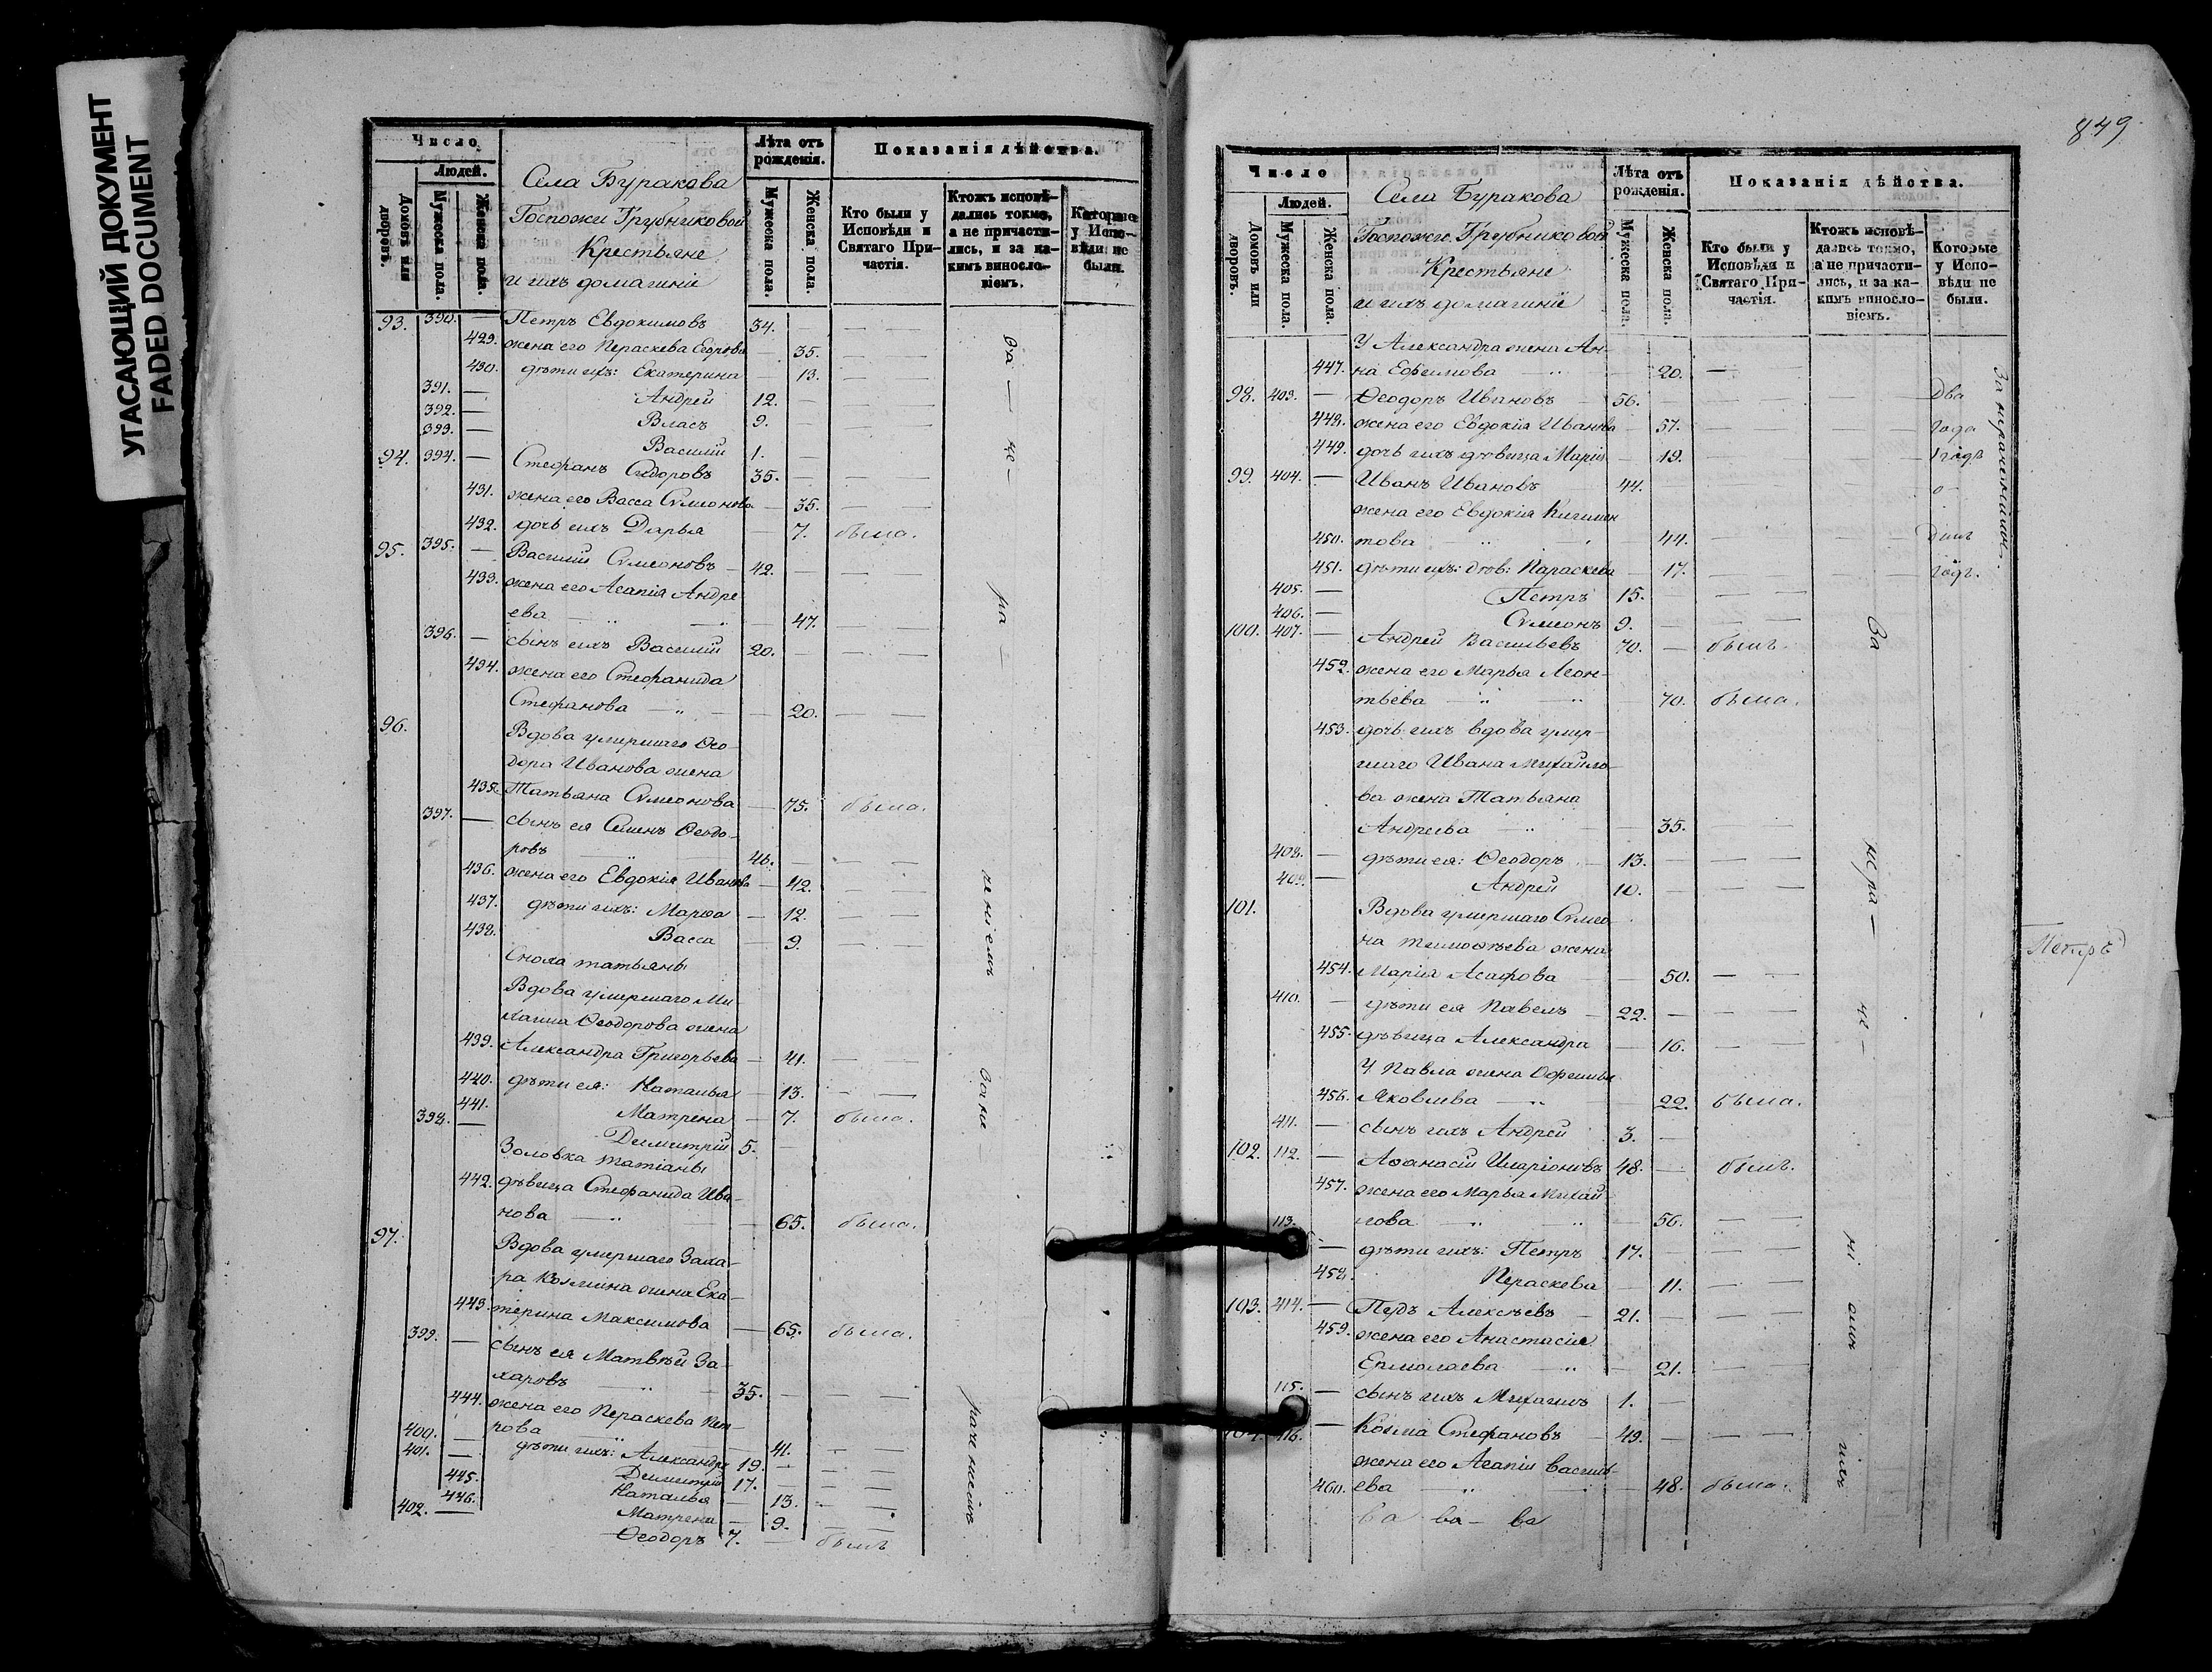 УГАСАЮЩИЙ ДОКУМЕНТ
FADED DOCUMENT
Число
Людей.
Домовъ или дворовъ.
Мужеска пола.
Женска пола.
Села Буракова
Госпожи Трубниковой
Крестьяне
и ихъ домашніе
Лѣта отъ рожденія.
Мужеска пола.
Женска пола.
Показанія дѣйства.
Кто были у Исповѣди и Святаго Причастія.
Ктожъ исповѣдались токмо, а не причастились, и за какимъ винословіемъ.
Которые у Исповѣди не были.
93. 390. — Петръ Евдокимовъ 34. — — —
429. жена его Пераскева Егорова — 35. — —
430. дѣти ихъ: Екатерина — 13. — —
391. — Андрей 12. — — —
392. — Власъ 9. — — —
393. — Василий 1. —
94. 394. — Стефанъ Сидоровъ 35. — — —
431. жена его Васса Симеонова — 35. — —
432. дочь ихъ Дарья — 7. была.
95. 395. — Василий Симеоновъ — 42. — — —
433. жена его Агапія Андре
ева — „ — „ — 47. — —
396. — сынъ ихъ Василий 20. — — —
434. жена его Стефанида
Стефанова — „ — — 20. — —
96. Вдова умершаго Ѳео-
дора Иванова жена
435. Татьяна Симеонова — 75. была.
397. — сынъ ея Семенъ Ѳеодо-
ровъ — „ 46. — — —
436. жена его Евдокія Иванова — 42. — —
437. дѣти ихъ: Марѳа — 12. — —
438. Васса — 9. — —
Сноха татьяны
Вдова умершаго Ми-
хаила Ѳеодорова жена
439. Александра Григорьева — 41. — —
440. дѣти ея: Наталья — 13. — —
441. Матрена — 7. была.
398. — Димитрій 5. —
Золовка татіаны
442. дѣвица Стефанида Ива-
нова — „ — 65. была.
97. Вдова умершаго Заха-
ра Козмина жена Ека-
443. терина Максимова — 65. была.
399. — сынъ ея Матвѣй За-
харовъ — „ — 35. — — —
444. жена его Пераскева Пет-
рова — „ — 41. — —
400. — дѣти ихъ: Александръ 19. — — —
401. — Димитрій 17. — — —
445. Наталья — 13. — —
446. Матрена — 9. — —
402. — Ѳеодоръ 7. — былъ
849
Число
Людей.
Домовъ или дворовъ.
Мужеска пола.
Женска пола.
Села Буракова
Госпожи Трубниковой
Крестьяне
и ихъ домашніе
Лѣта отъ рожденія.
Мужеска пола.
Женска пола.
Показанія дѣйства.
Кто были у Исповѣди и Святаго Причастія.
Ктожъ исповѣдались токмо, а не причастились, и за какимъ винословіемъ.
Которые у Исповѣди не были.
У Александра жена Ан-
447. на Ефимова — „ — 20. —
98. 403. — Ѳеодоръ Ивановъ — 56. — — — — два
448. жена его Евдокія Иванова — 57. — — — года
449. дочь ихъ дѣвица Марія — 19. — — — 1 годъ
99. 404. — Иванъ Ивановъ 44.
жена его Евдокія
450. това — „ — 44. — — — одинъ
451. дѣти ихъ: дѣв: Параскева — 17. — — — годъ.
405. — Петръ 15. — — —
406. — Симеонъ 9. — — —
100. 407. — Андрей Васильевъ 70. — былъ.
452. жена его Марья Леон-
тьева — „ — 70. была.
453. дочь ихъ вдова умер-
шаго Ивана Михайло-
ва жена Татьяна
Андреева — „ — 35. — —
408. — дѣти ея: Ѳеодоръ — 13. — — —
409. — Андрей 10. — — —
101. Вдова умершаго Симео
на тимоѳѣева жена
454. Марія Асафова — 50. — —
410. — дѣти ея Павелъ — 22. — — —
455. дѣвица Александра — 16. — —
У Павла жена Офимья
456. Яковлева — „ — 22. была.
411. — сынъ ихъ Андрей 3. —
102. 112. — Аѳанасій Иларіоновъ 48. — былъ.
457. жена его Марья Михай
лова — „ — 56. — —
113. — дѣти ихъ: Петръ 17. — — —
458. Пераскева — 11. — —
103. 414. — Пудъ Алексѣевъ — 21. — — —
459. жена его Анастасія
Ермолаева — „ — 21. — —
115. — сынъ ихъ Михаилъ 1. —
104. 116. — Козма Стефановъ 49. — — —
жена его Агапія Василь-
460. ева — „ — 48. была.
ва ва — ва
Петръ